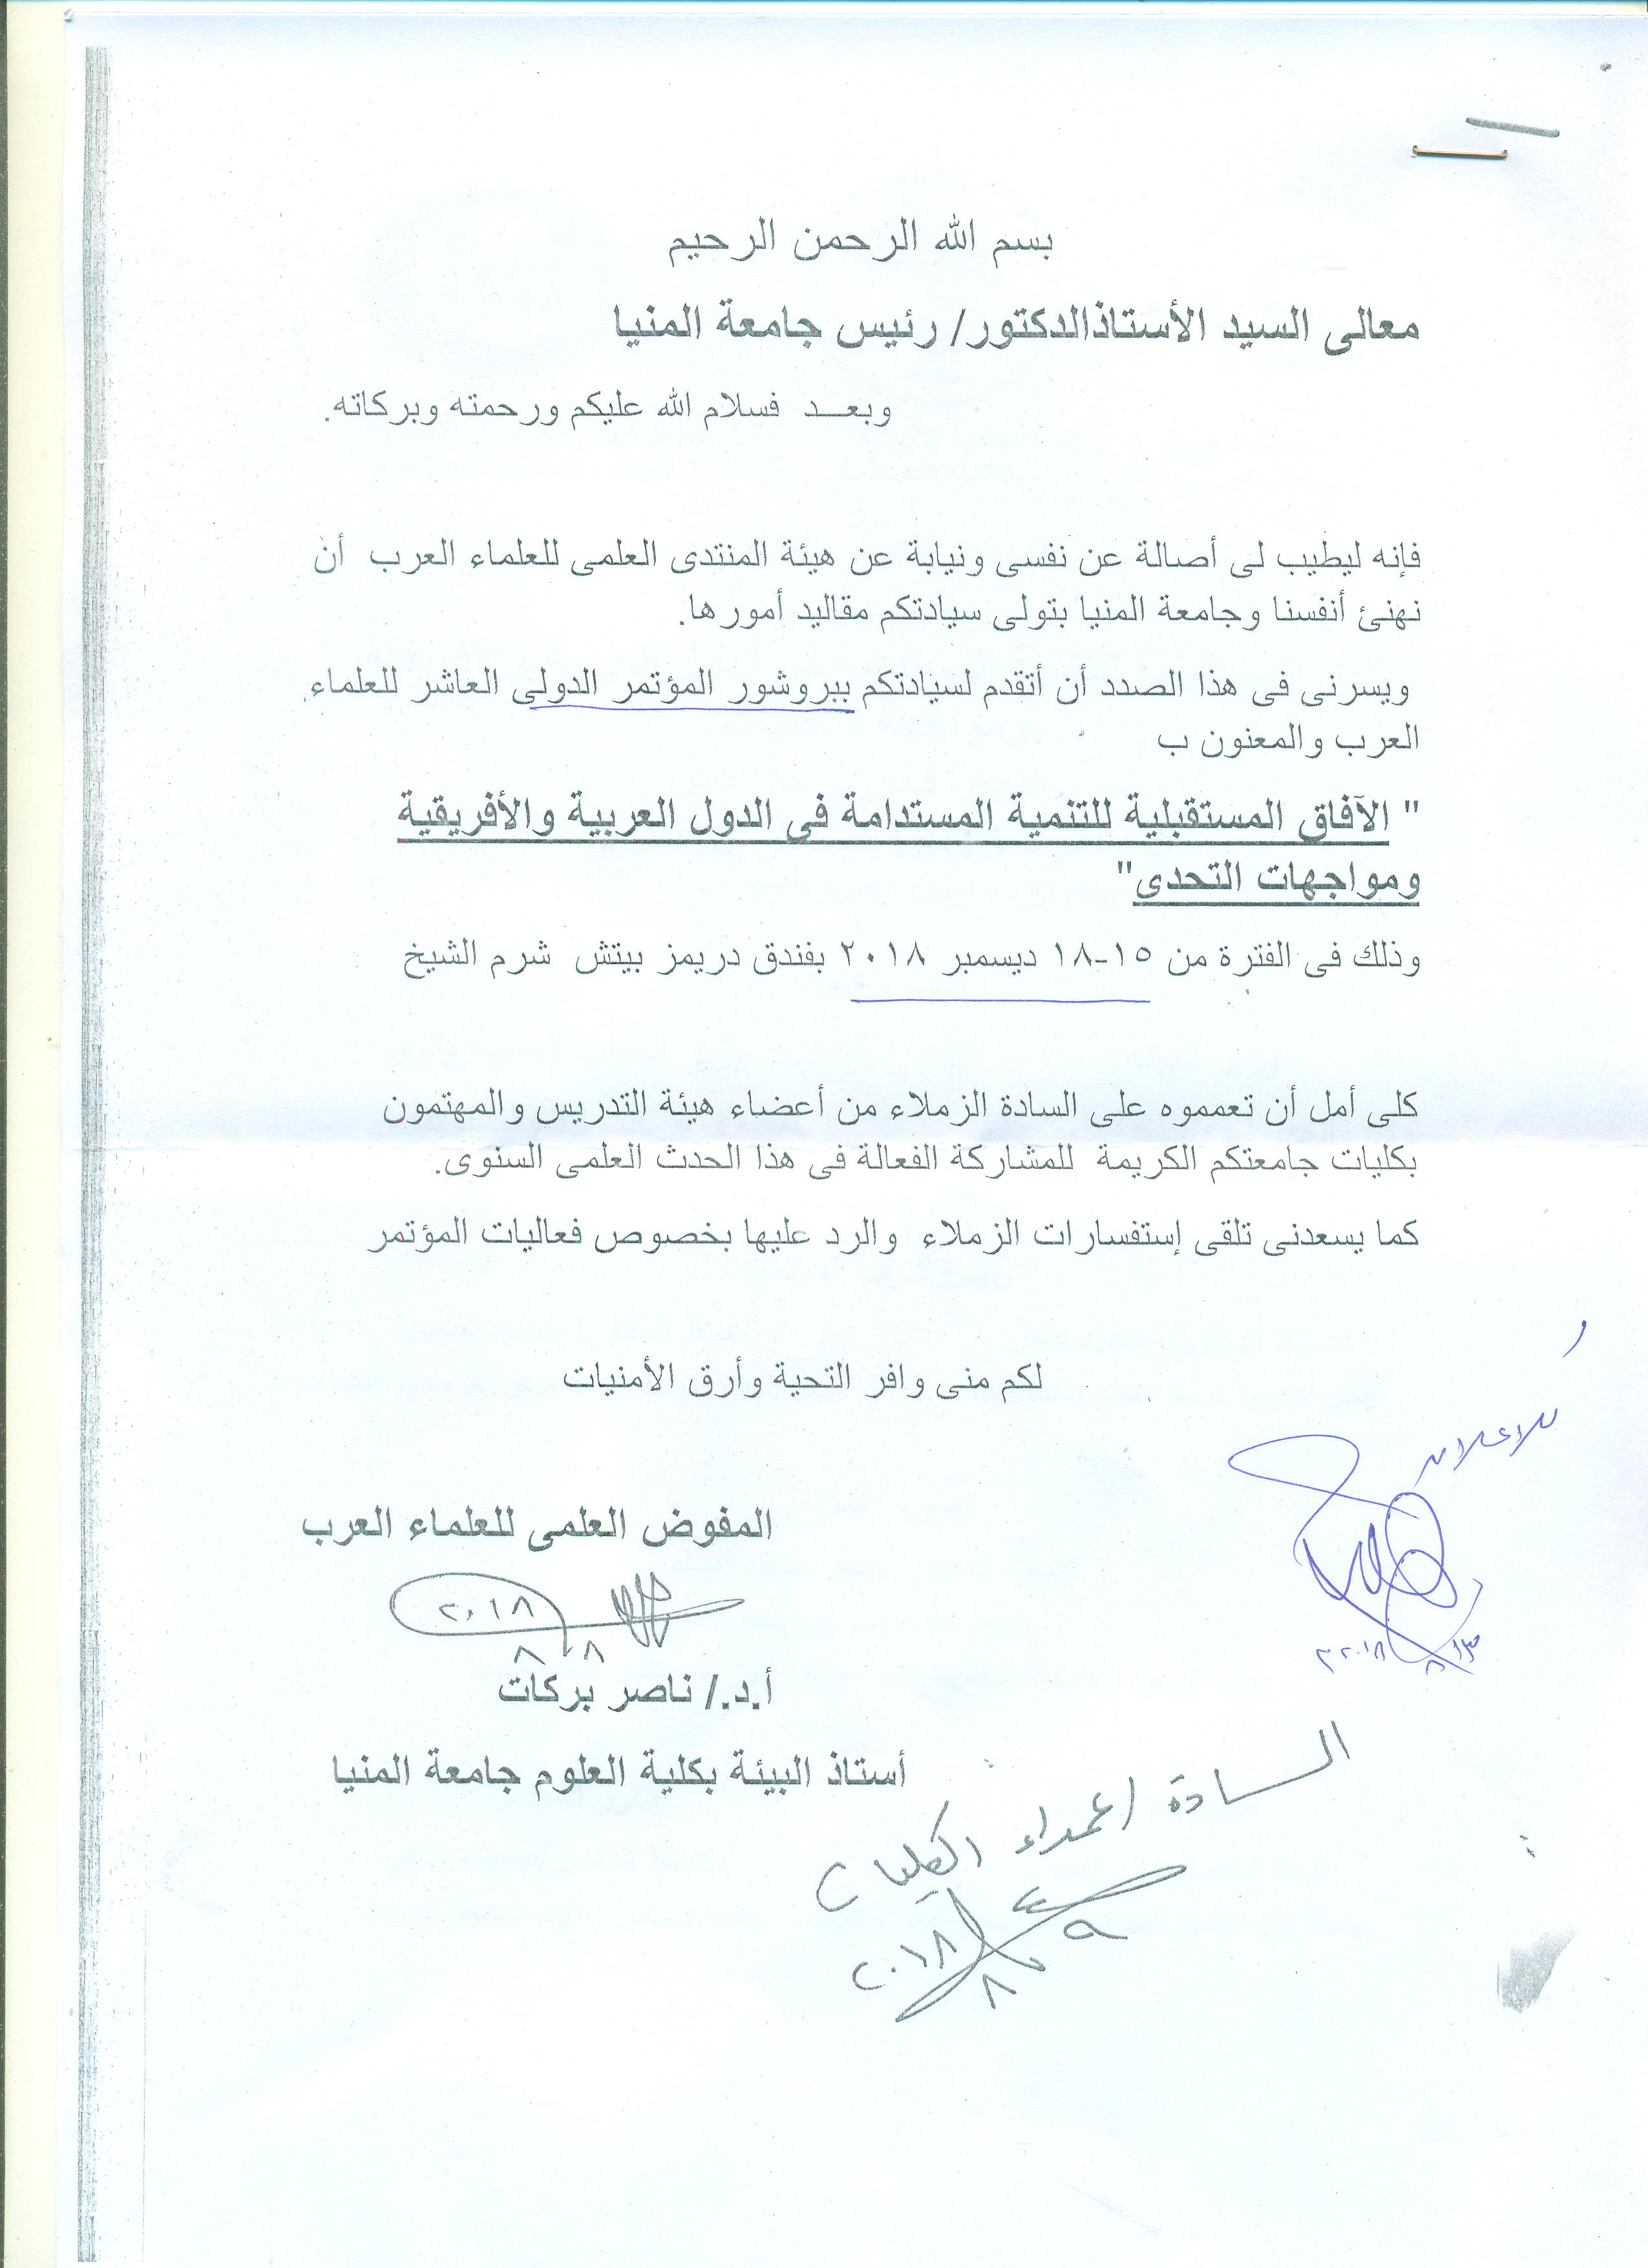 بسم الله الرحمن الرحيم
معالى السيد الأستاذالدكتور/ رئيس جامعة المنيا
وبعـــد فسلام الله عليكم ورحمته وبركاته.
فإنه ليطيب لى أصالة عن نفسى ونيابة عن هيئة المنتدى العلمى للعلماء العرب أن
نهنئ أنفسنا وجامعة المنيا بتولى سيادتكم مقاليد أمورها.
ويسرنى فى هذا الصدد أن أتقدم لسيادتكم ببروشور المؤتمر الدولى العاشر للعلماء
العرب والمعنون ب
" الآفاق المستقبلية للتنمية المستدامة فى الدول العربية والأفريقية
ومواجهات التحدى"
وذلك فى الفترة من ١٥-١٨ ديسمبر ٢٠١٨ بفندق دريمز بيتش شرم الشيخ
كلى أمل أن تعمموه على السادة الزملاء من أعضاء هيئة التدريس والمهتمون
بكليات جامعتكم الكريمة للمشاركة الفعالة فى هذا الحدث العلمى السنوى.
كما يسعدنى تلقى إستفسارات الزملاء والرد عليها بخصوص فعاليات المؤتمر
لكم منى وافر التحية وأرق الأمنيات
للاعلان
المفوض العلمى للعلماء العرب
٢٠١٨
٨ ٨
٨/١٣ ٢٠١٨
أ.د./ ناصر بركات
أستاذ البيئة بكلية العلوم جامعة المنيا
السادة / عمداء الكليات
٢٠١٨ ٨ ٩